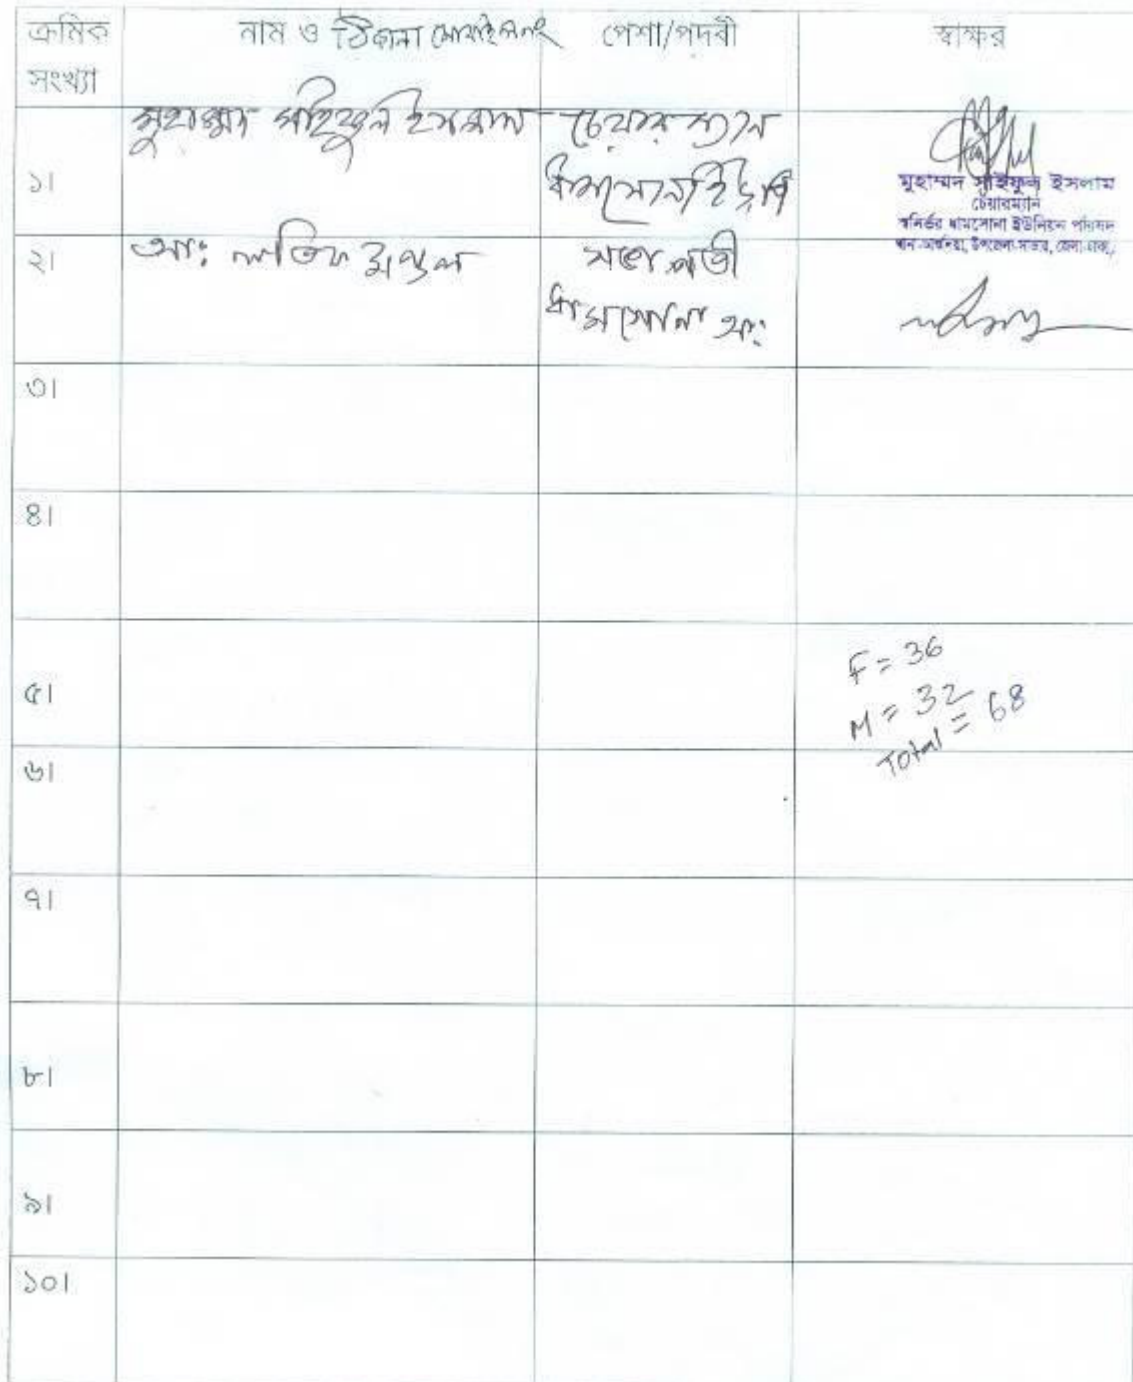 ক্রমিক সংখ্যা নাম ও ঠিকানা মোবাইল নং পেশা/পদবী স্বাক্ষর
মুহাম্মদ সাইফুল ইসলাম চেয়ারম্যান
১। ধামসোনা ইউপি
মুহাম্মদ সাইফুল ইসলাম
চেয়ারম্যান
স্বনির্ভর ধামসোনা ইউনিয়ন পরিষদ
থানা-আশুলিয়া, উপজেলা-সাভার, জেলা-ঢাকা,
২। আঃ লতিফ মণ্ডল
ধামসোনা আঃ
৩।
৪।
৫।
F = 36
M = 32
Total = 68
৬।
৭।
৮।
৯।
১০।